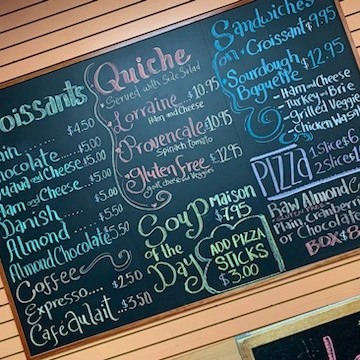 oissants
ain ..... $4.50
hocolate ..... $5.00
and Cheese $5.00
am and Cheese $5.00
Danish ..... $5.50
Almond ..... $5
Almond Chocolate $5.50
Coffee
Expresso .... $2.50
Café au lait ... $3.50
Quiche
Served with Side Salad
Lorraine $10.95
Ham and Cheese
Provencale $10.95
Spinach Tomato
Gluten Free $12.95
goat cheese and Veggies
Soup Maison
of the $7.95
Day
ADD PIZZA
STICKS
$3.00
Sandwiches
on Croissant $9.95
Sourdough $12.95
Baguette
- Ham and Cheese
- Turkey-Brie
- Grilled Veggi
- Chicken
PIZZA
1 Slice $
2 Slice
Raw Almond
Plain, Cranberry
or Chocolate
BOX $